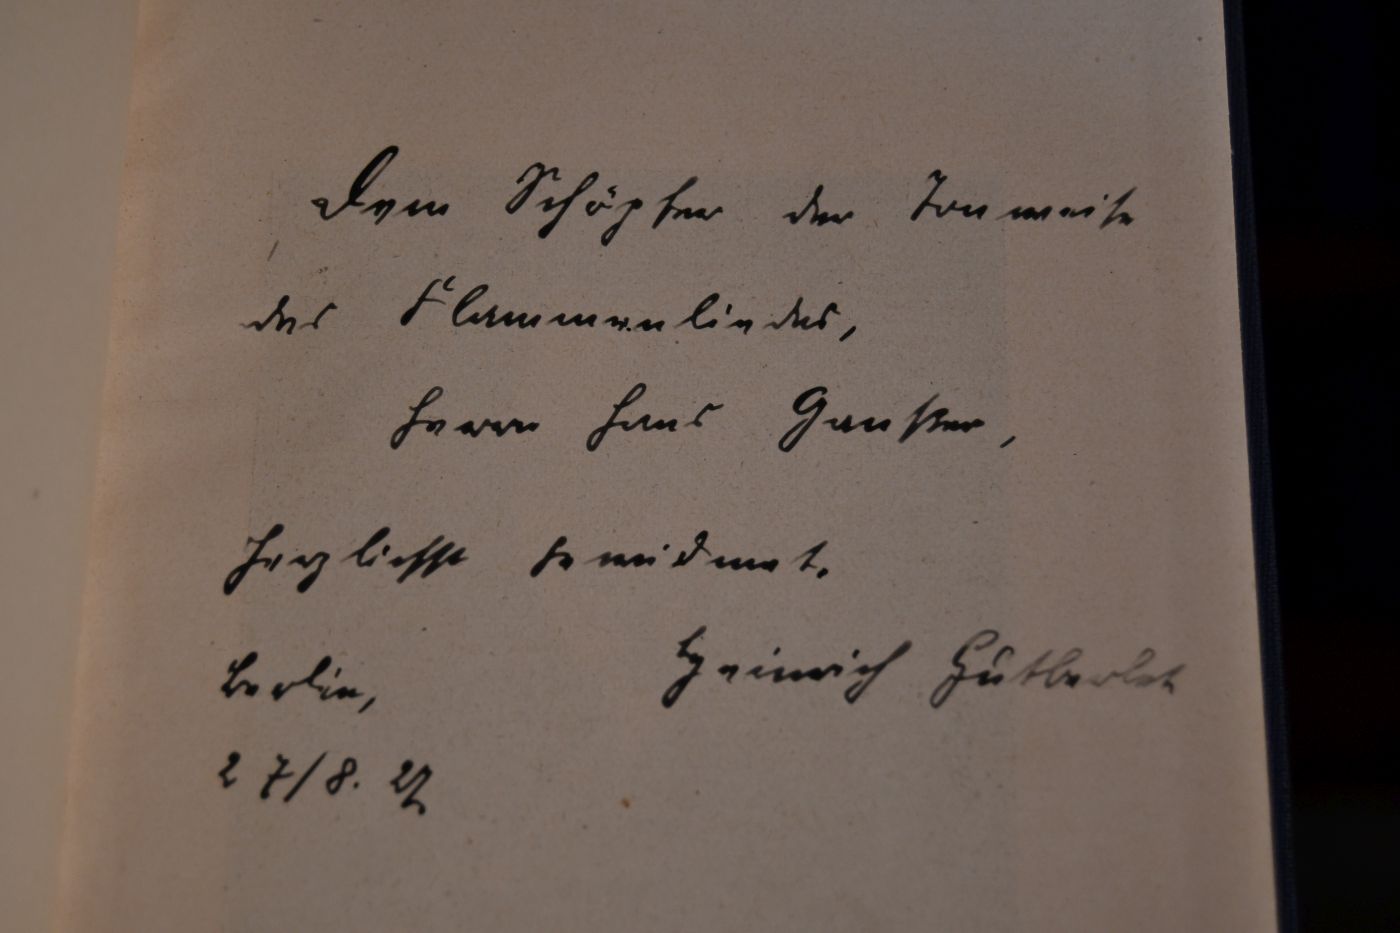 Dem Schöpfer der Tonweise
des Flammenliedes,
Herrn Hans Gansser,
herzlichst gewidmet.
Berlin,
Heinrich Gutberlet
27/8. 27